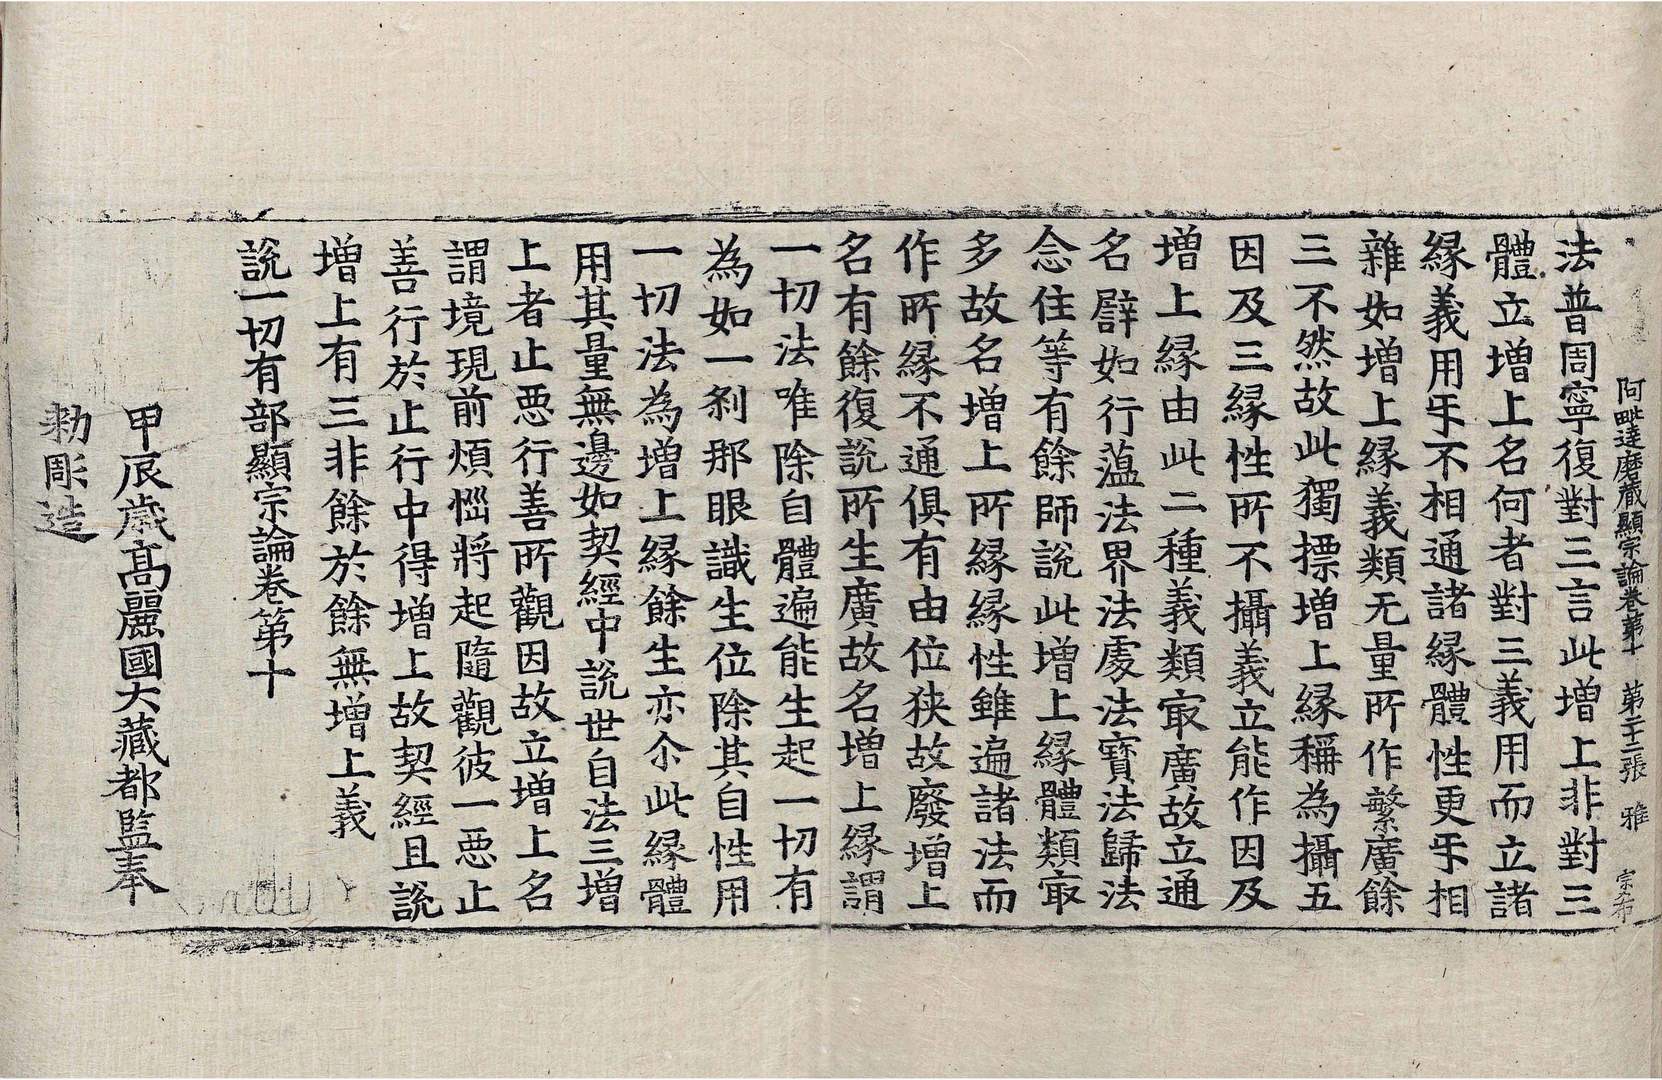 阿毗達磨藏顯宗論卷第十 第二十二張 雅 宗希
法普周寧復對三言此增上非對三
體立增上名何者對三義用而立諸
縁義用㸦不相通諸縁體性更㸦相
雜如增上縁義類无量所作繁廣餘
三不然故此獨摽增上縁稱為攝五
因及三縁性所不攝義立能作因及
增上縁由此二種義類㝡廣故立通
名譬如行薀法界法處法寶法歸法
念住等有餘師說此增上縁體類㝡
多故名增上所縁縁性雖遍諸法而
作所縁不通俱有由位狹故廢增上
名有餘復說所生廣故名增上縁謂
一切法唯除自體遍能生起一切有
為如一剎那眼識生位除其自性用
一切法為增上縁餘生亦尒此縁體
用其量無邊如契經中說世自法三增
上者止惡行善所觀因故立增上名
謂境現前煩惱將起隨觀彼一惡止
善行於止行中得增上故契經且說
增上有三非餘於餘無增上義
說一切有部顯宗論卷第十
甲辰歳高麗國大藏都監奉
勑彫造